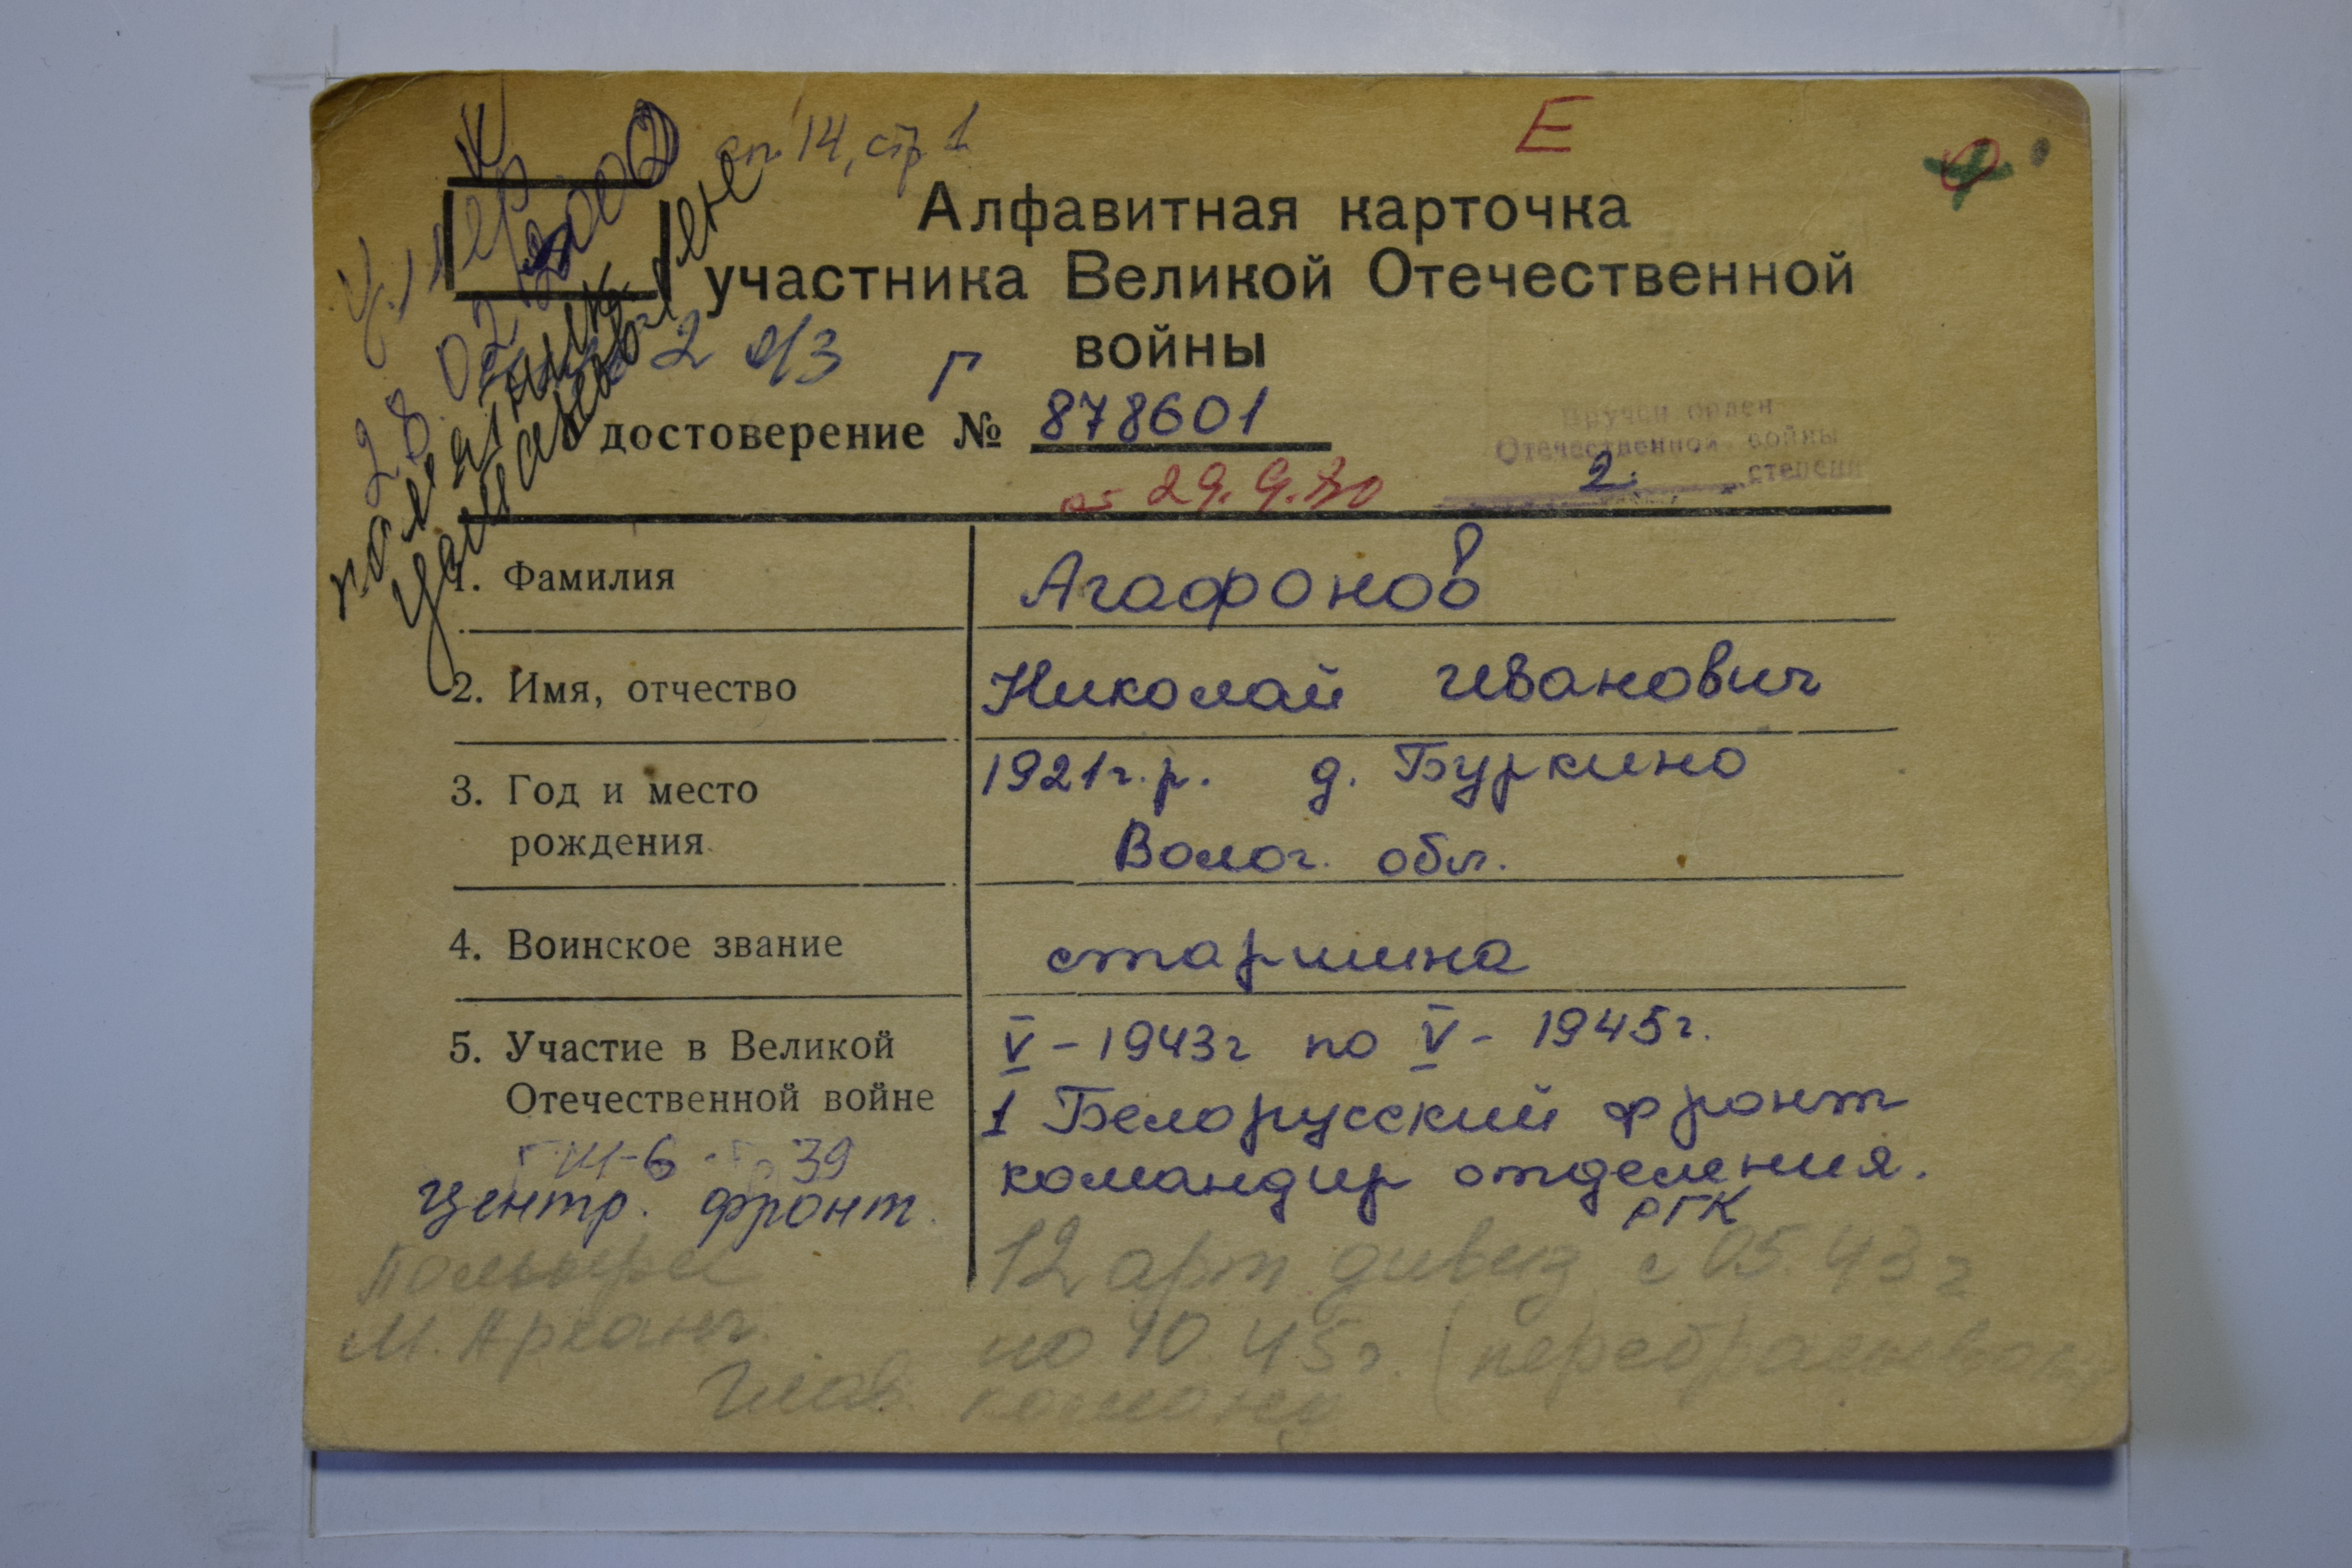 К
оп. 14, стр 1
Е
Алфавитная карточка
участника Великой Отечественной
войны
Умер
28.02.2002
памятник
установлен
2 о/з г
Удостоверение № 878601
от 29.9.80
Вручен орден
Отечественной войны
2. степени
1. Фамилия Агафонов
2. Имя, отчество Николай Иванович
3. Год и место 1921г.р. д. Буркино
рождения Волог. обл.
4. Воинское звание старшина
5. Участие в Великой V - 1943г по V - 1945г.
Отечественной войне 1 Белорусский фронт
39 командир отделения.
Центр. фронт. РГК
12 арт дивиз с 05.43 г
М. Арханг. по 10.45г. (
Глав.